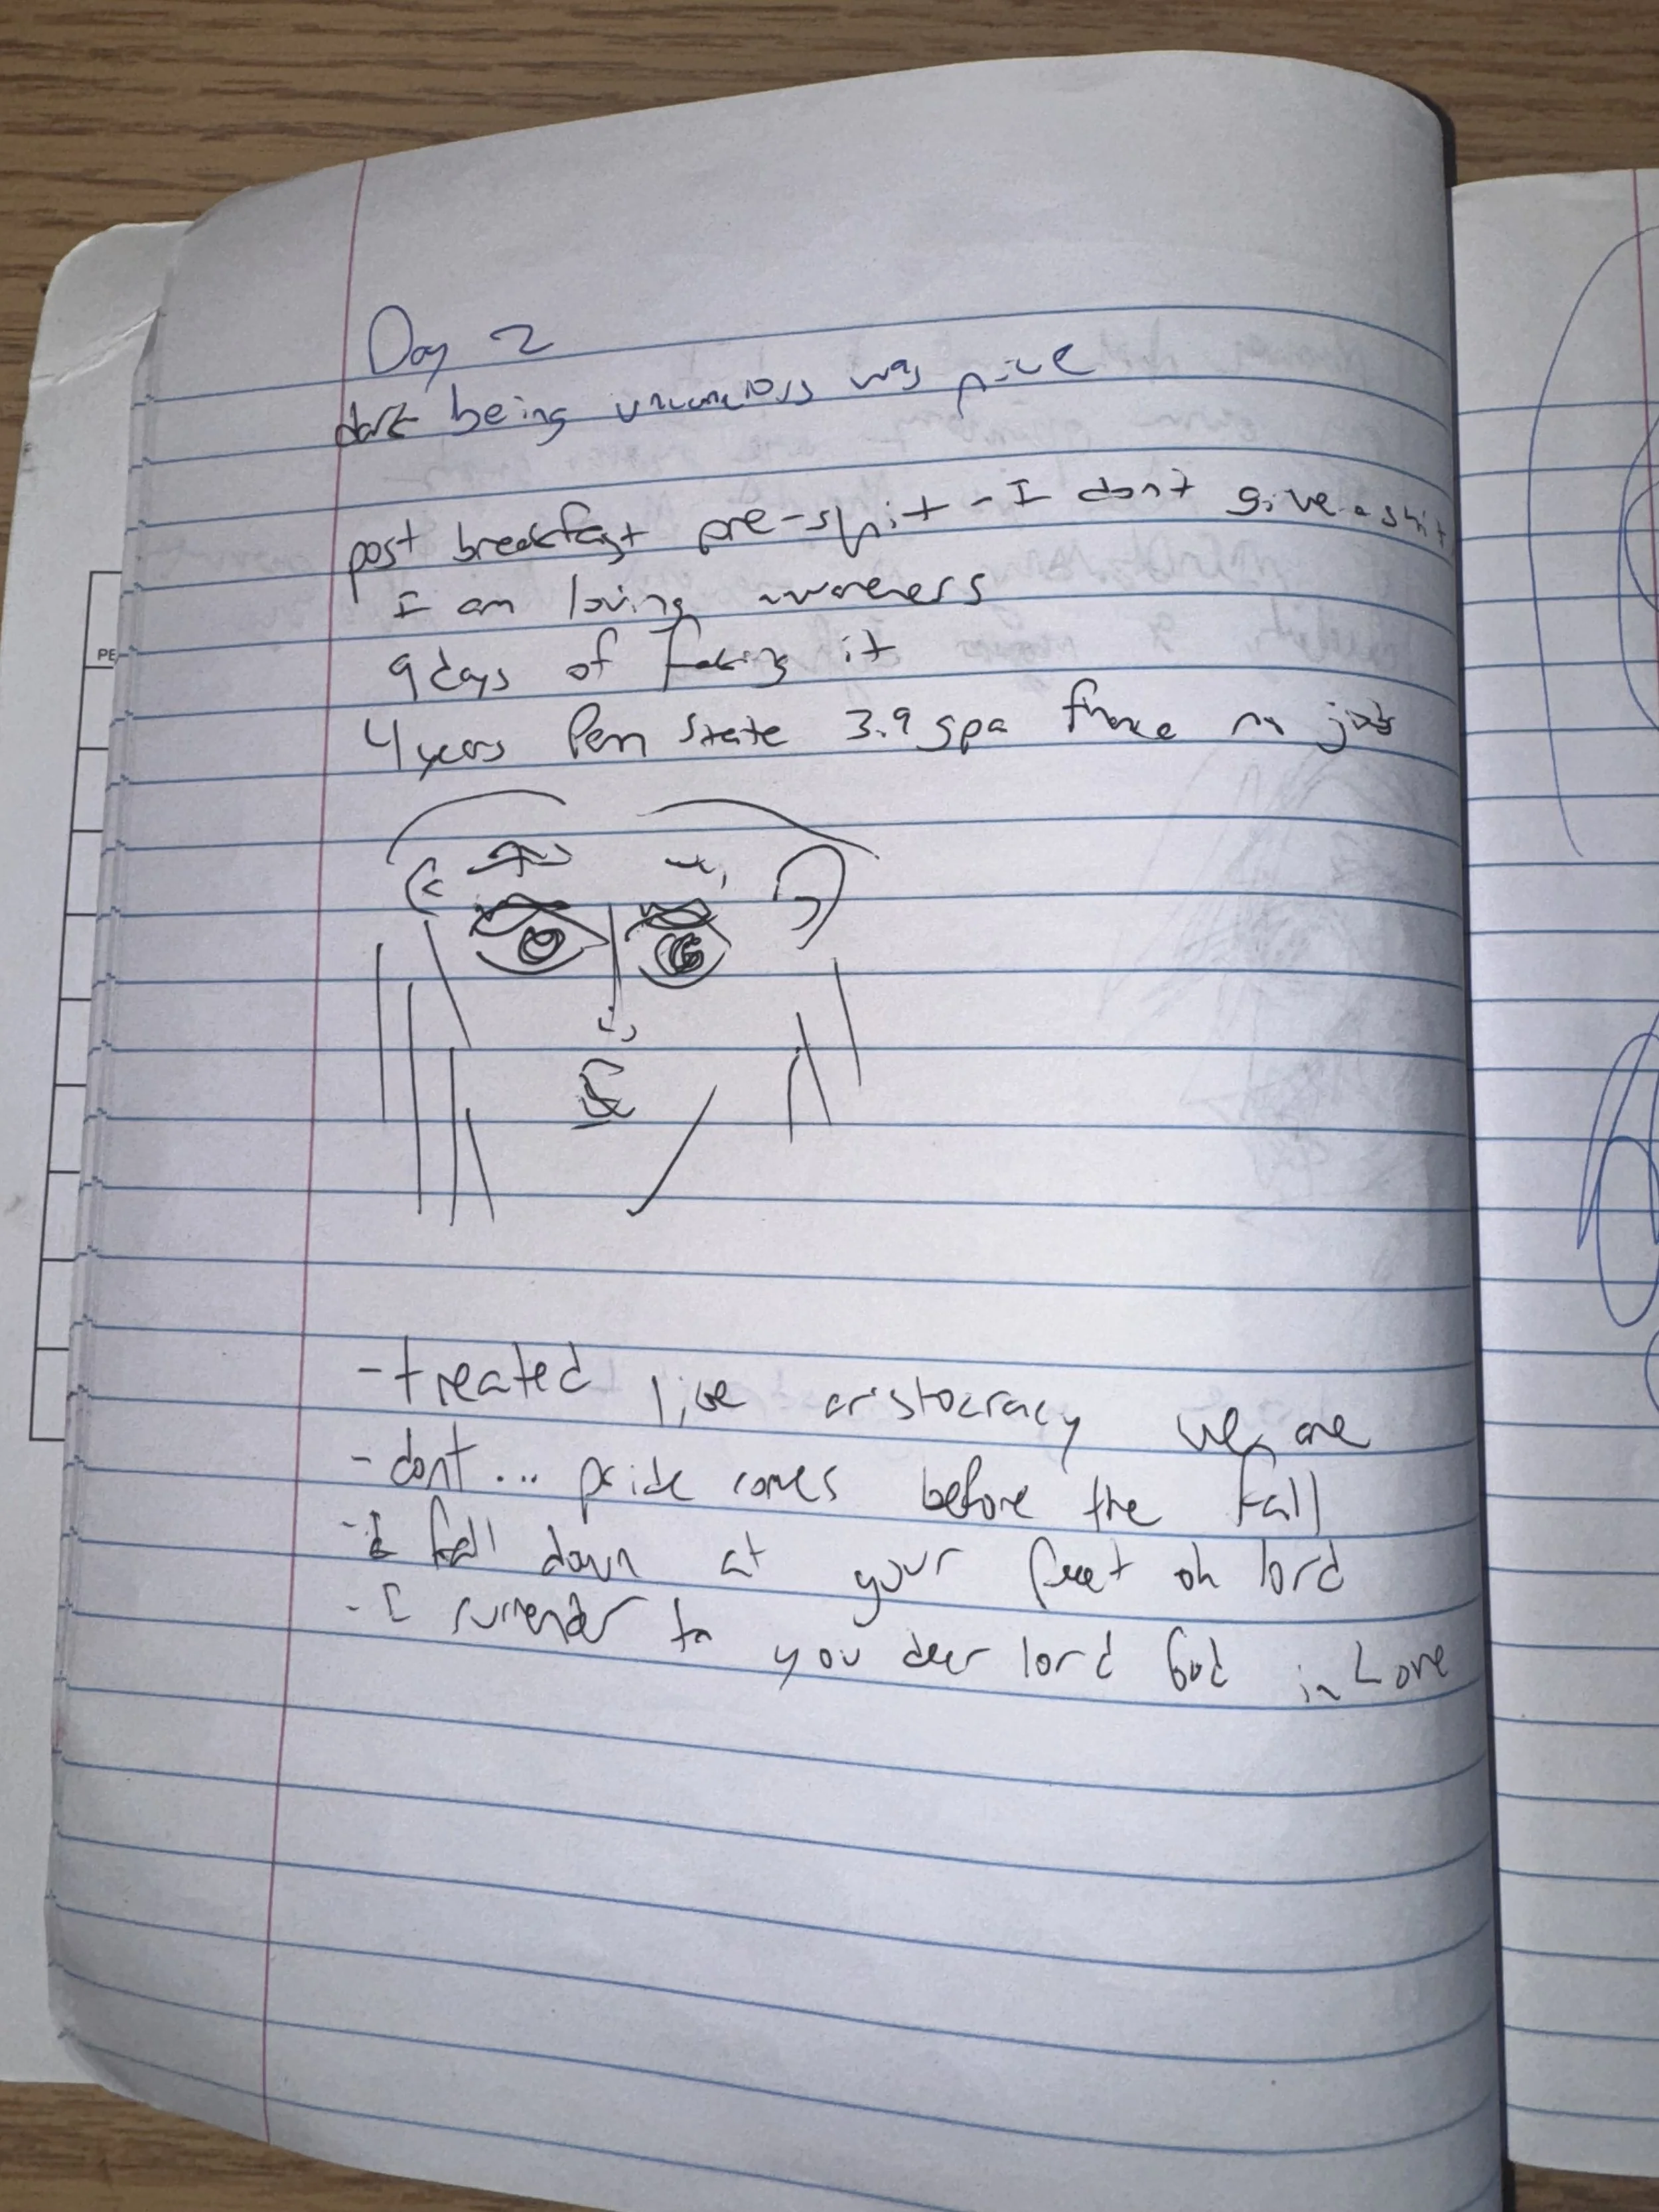 Day 2
dark being unconcious was nice
post breakfast pre-shit - I dont give a shit
I am loving awareness
9 days of faking it
4 years Penn State 3.9 gpa finance no job
PE
- treated like aristocracy we are
- dont... pride comes before the fall
- I fall down at your feet oh lord
- I surrender to you dear lord God in Love